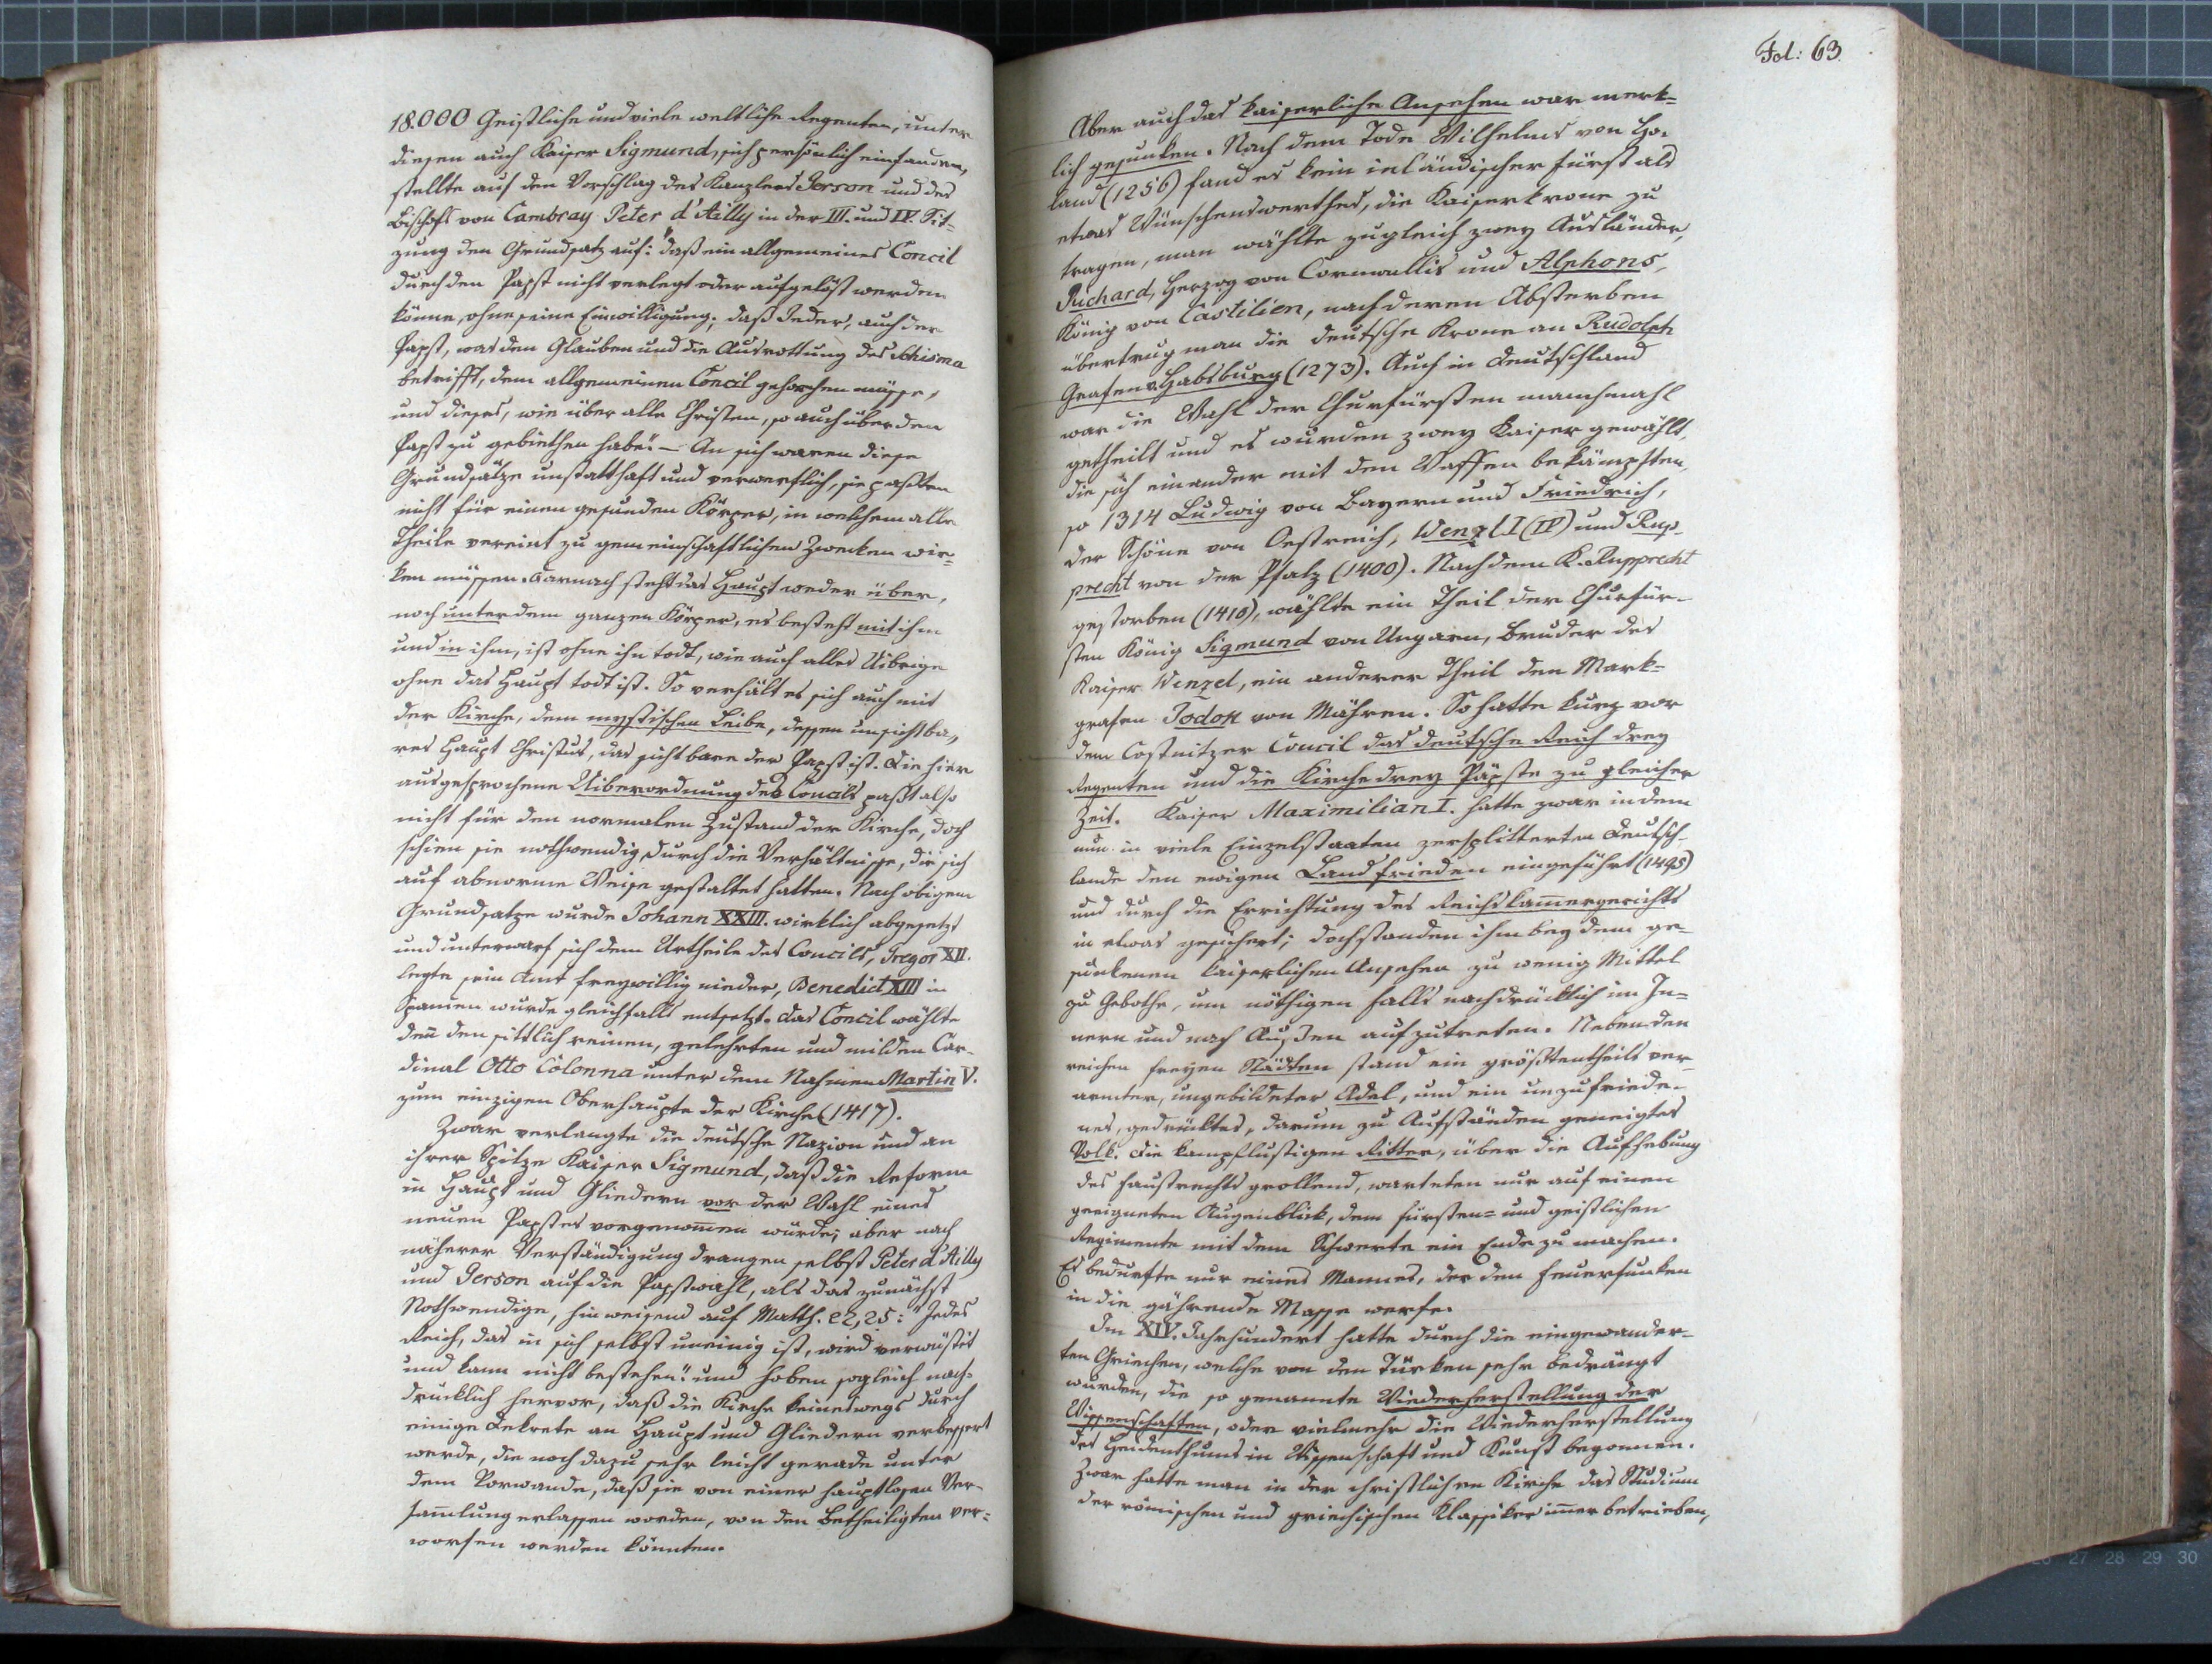 18.000 Geistliche und viele weltliche Regenten, unter
diesen auch Kaiser Sigmund, sich persönlich einfanden,
stellte auf den Vorschlag des Kanzlers Gerson und des
Bischofs von Cambray Peter d'Ailly in der III. und IV. Sit-
zung den Grundsatz auf: "daß ein allgemeines Concil
durch den Papst nicht verlegt oder aufgelöst werden
könne, ohne seine Einwilligung; daß Jeder, auch der
Papst, was den Glauben und die Ausrottung des Schisma
betrifft, dem allgemeinen Concil gehorchen müsse,
und dieses, wie über alle Christen, so auch über den
Papst zu gebiethen habe." – An sich waren diese
Grundsätze unstatthaft und verwerflich, sie paßten
nicht für einen gesunden Körper, in welchem alle
Theile vereint zu gemeinschaftlichen Zwecken wir-
ken müssen. Darnach steht das Haupt weder über,
noch unter dem ganzen Körper, es besteht mit ihm
und in ihm, ist ohne ihn todt, wie auch alles Uibrige
ohne das Haupt todt ist. So verhält es sich auch mit
der Kirche, dem mystischen Leibe, dessen unsichtba-
res Haupt Christus, das sichtbare der Papst ist. Die hier
ausgesprochene Uiberordnung des Concils paßt also
nicht für den normalen Zustand der Kirche, doch
schien sie nothwendig durch die Verhältnisse, die sich
auf abnorme Weise gestaltet hatten. Nach obigem
Grundsatze wurde Johann XXIII. wirklich abgesetzt
und unterwarf sich dem Urtheile des Concils, Gregor XII.
legte sein Amt freywillig nieder, Benedict XIII in
Spanien wurde gleichfalls entsetzt. Das Concil wählte
den̄ den sittlich reinen, gelehrten und milden Car-
dinal Otto Colonna unter dem Nahmen Martin V.
zum einzigen Oberhaupte der Kirche (1417).
Zwar verlangte die deutsche Nazion und an
ihrer Spitze Kaiser Sigmund, daß die Reform
in Haupt und Gliedern vor der Wahl eines
neuen Papstes vorgenom̄en würde; aber nach
näherer Verständigung drangen selbst Peter d'Ailly
und Gerson auf die Papstwahl, als das zunächst
Nothwendige, hinweisend auf Matth. 22,25: "Jedes
Reich, das in sich selbst uneinig ist, wird verwüstet
und kann nicht bestehen" und hoben sogleich nach-
drücklich hervor, daß die Kirche keineswegs durch
einige Dekrete an Haupt und Gliedern verbessert
werde, die noch dazu sehr leicht gerade unter
dem Vorwande, daß sie von einer hauptlosen Ver-
sam̄lung erlassen worden, von den Betheiligten ver-
worfen werden könnten.
Fol: 63.
Aber auch das kaiserliche Ansehen war merk-
lich gesunken. Nach dem Tode Wilhelms von Ho-
land (1256) fand es kein inländischer Fürst als
etwas Wünschenswerthes, die Kaiserkrone zu
tragen, man wählte zugleich zwey Ausländer,
Richard, Herzog von Cornwallis und Alphons,
König von Castilien, nach deren Absterben
übertrug man die deutsche Krone an Rudolph
Grafen v. Habsburg (1273). Auch in Deutschland
war die Wahl der Churfürsten manchmahl
getheilt und es wurden zwey Kaiser gewählt,
die sich einander mit den Waffen bekämpften,
so 1314 Ludwig von Bayern und Friedrich,
der Schöne von Oestreich, Wenzl I (IV) und Rup-
precht von der Pfalz (1400). Nach dem K. Rupprecht
gestorben (1410), wählte ein Theil der Churfür-
sten König Sigmund von Ungarn, Bruder des
Kaiser Wenzel, ein anderer Theil den Mark-
grafen Jodok von Mähren. So hatte kurz vor
dem Costnitzer Concil das deutsche Reich drey
Regenten und die Kirche drey Päpste zu gleicher
Zeit. Kaiser Maximilian I. hatte zwar in dem
nun in viele Einzelstaaten zersplitterten Deutsch-
lande den ewigen Landfrieden eingeführt (1495)
und durch die Errichtung des Reichskam̄ergerichts
in etwas gesichert; doch standen ihm bey dem ge-
sunkenen kaiserlichen Ansehen zu wenig Mittel
zu Gebothe, um nöthigen Falls nachdrücklich im In-
nern und nach Außen aufzutreten. Neben den
reichen freyen Städten stand ein größtentheils ver-
armter, ungebildeter Adel, und ein unzufriede-
nes, gedrücktes, darum zu Aufständen geneigtes
Volk. Die kampflustigen Ritter, über die Aufhebung
des Faustrechts grollend, warteten nur auf einen
geeigneten Augenblick, dem fürsten- und geistlichen
Regimente mit dem Schwerte ein Ende zu machen.
Es bedurfte nur eines Mannes, der den Feuerfunken
in die gährende Masse werfe.
Im XIV. Jahrhundert hatte durch die eingewander-
ten Griechen, welche von den Türken sehr bedrängt
wurden, die so genannte Wiederherstellung der
Wissenschaften, oder vielmehr die Wiederherstellung
des Heidenthums in Wissenschaft und Kunst begonnen.
Zwar hatte man in der christlichen Kirche das Studium
der römischen und griechischen Klassiker im̄er betrieben,
26 27 28 29 30